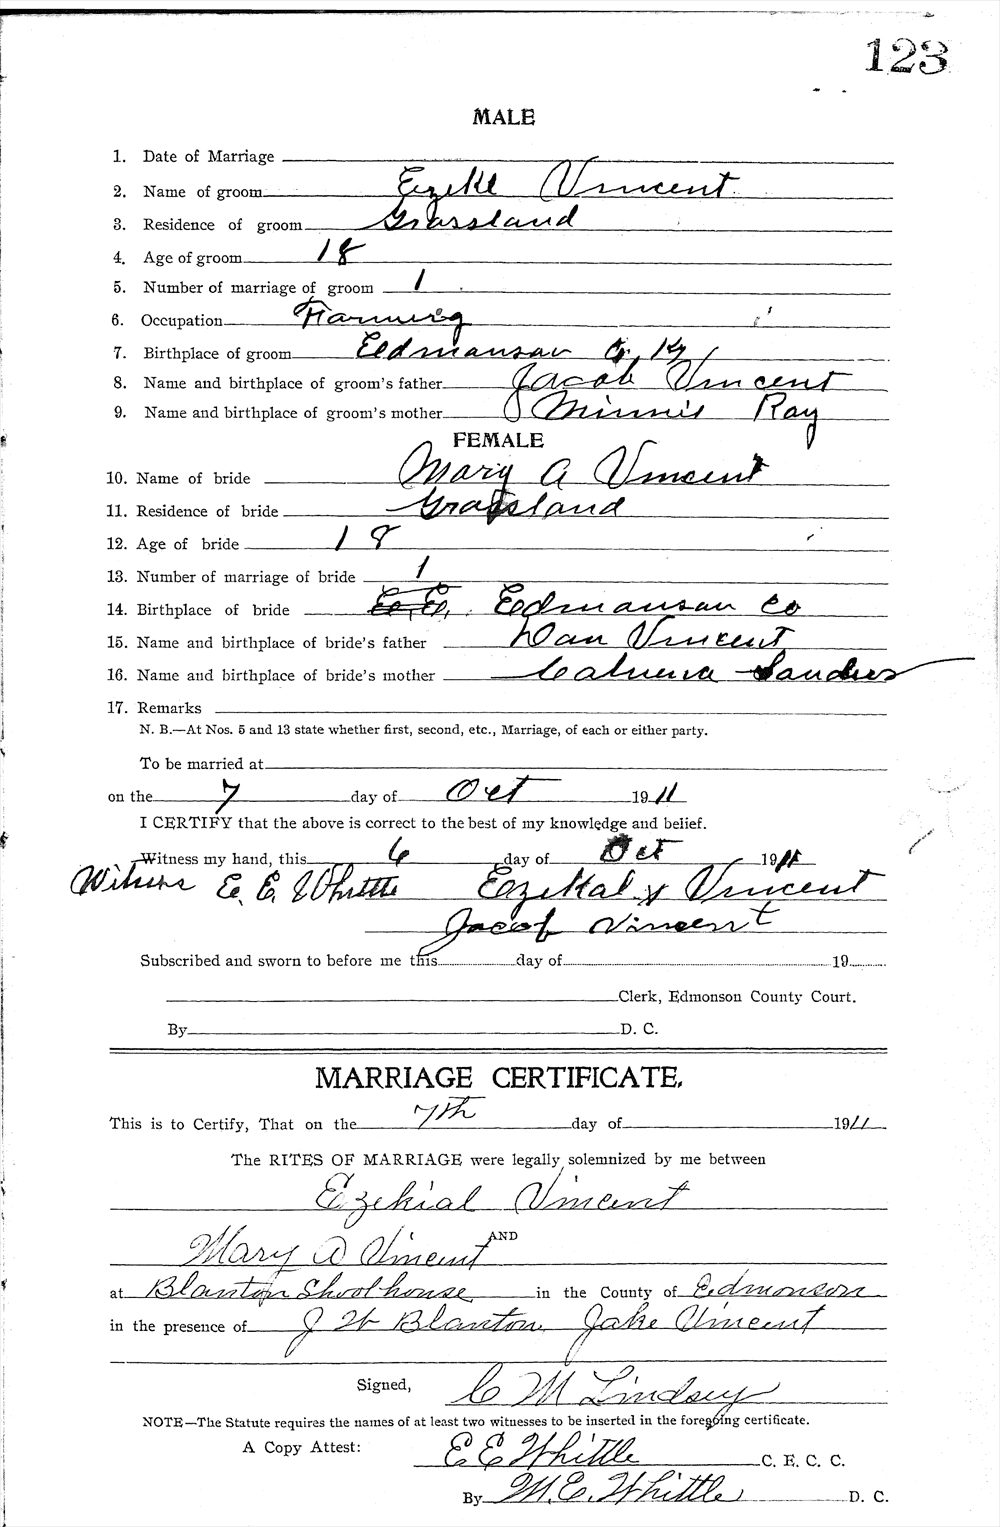 123
MALE
1. Date of Marriage
2. Name of groom Ezekl Vincent
3. Residence of groom Grassland
4. Age of groom 18
5. Number of marriage of groom 1
6. Occupation Farming
7. Birthplace of groom Edmanson Co, Ky
8. Name and birthplace of groom's father Jacob Vincent
9. Name and birthplace of groom's mother Minnie Ray
FEMALE
10. Name of bride Mary A Vincent
11. Residence of bride Grassland
12. Age of bride 18
13. Number of marriage of bride 1
14. Birthplace of bride Edmanson Co
15. Name and birthplace of bride's father Dan Vincent
16. Name and birthplace of bride's mother Sanders
17. Remarks
N. B.—At Nos. 5 and 13 state whether first, second, etc., Marriage, of each or either party.
To be married at
on the 7 day of Oct 1911
I CERTIFY that the above is correct to the best of my knowledge and belief.
Witness my hand, this 6 day of Oct 1911
Witness E. E. Whittle Ezekal x Vincent
Jacob Vincent
Subscribed and sworn to before me this day of 19
Clerk, Edmonson County Court.
By D. C.
MARRIAGE CERTIFICATE.
This is to Certify, That on the 7th day of 1911
The RITES OF MARRIAGE were legally solemnized by me between
Ezekial Vincent
AND
Mary A Vincent
at Blanton Shoolhouse in the County of Edmonson
in the presence of J W Blanton, Jake Vincent
Signed, C M Lindsey
NOTE—The Statute requires the names of at least two witnesses to be inserted in the foregoing certificate.
A Copy Attest: E E Whittle C. E. C. C.
By M. E. Whittle D. C.